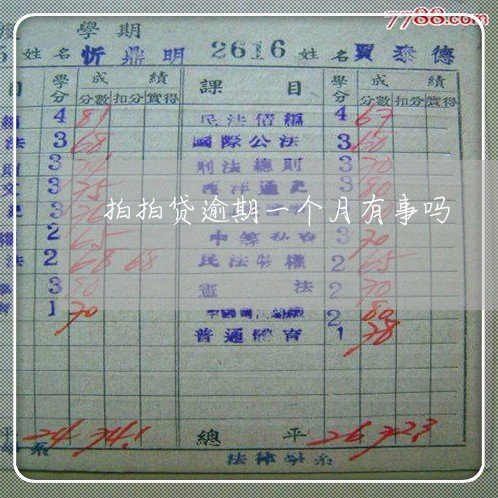 7788.com
學期
姓名 忻鼎明 2616 姓名 賈泰德
目 學分 成績 課目 學分 成績
分數 扣分 實得 分數 扣分 實得
4 81 民法債編 4 67
法 3 68 國際公法 3 60
3 刑法總則 3 70
3 75 西洋通史 3 80
拍拍贷逾期一个月有事吗
2 65 3 70
法 2 68 68 民法物權 2 65
3 80 憲法 2 70
1 70 2 80
普通體育 1 78
平 24 74.1 總平 26 72.3
系 法律學系